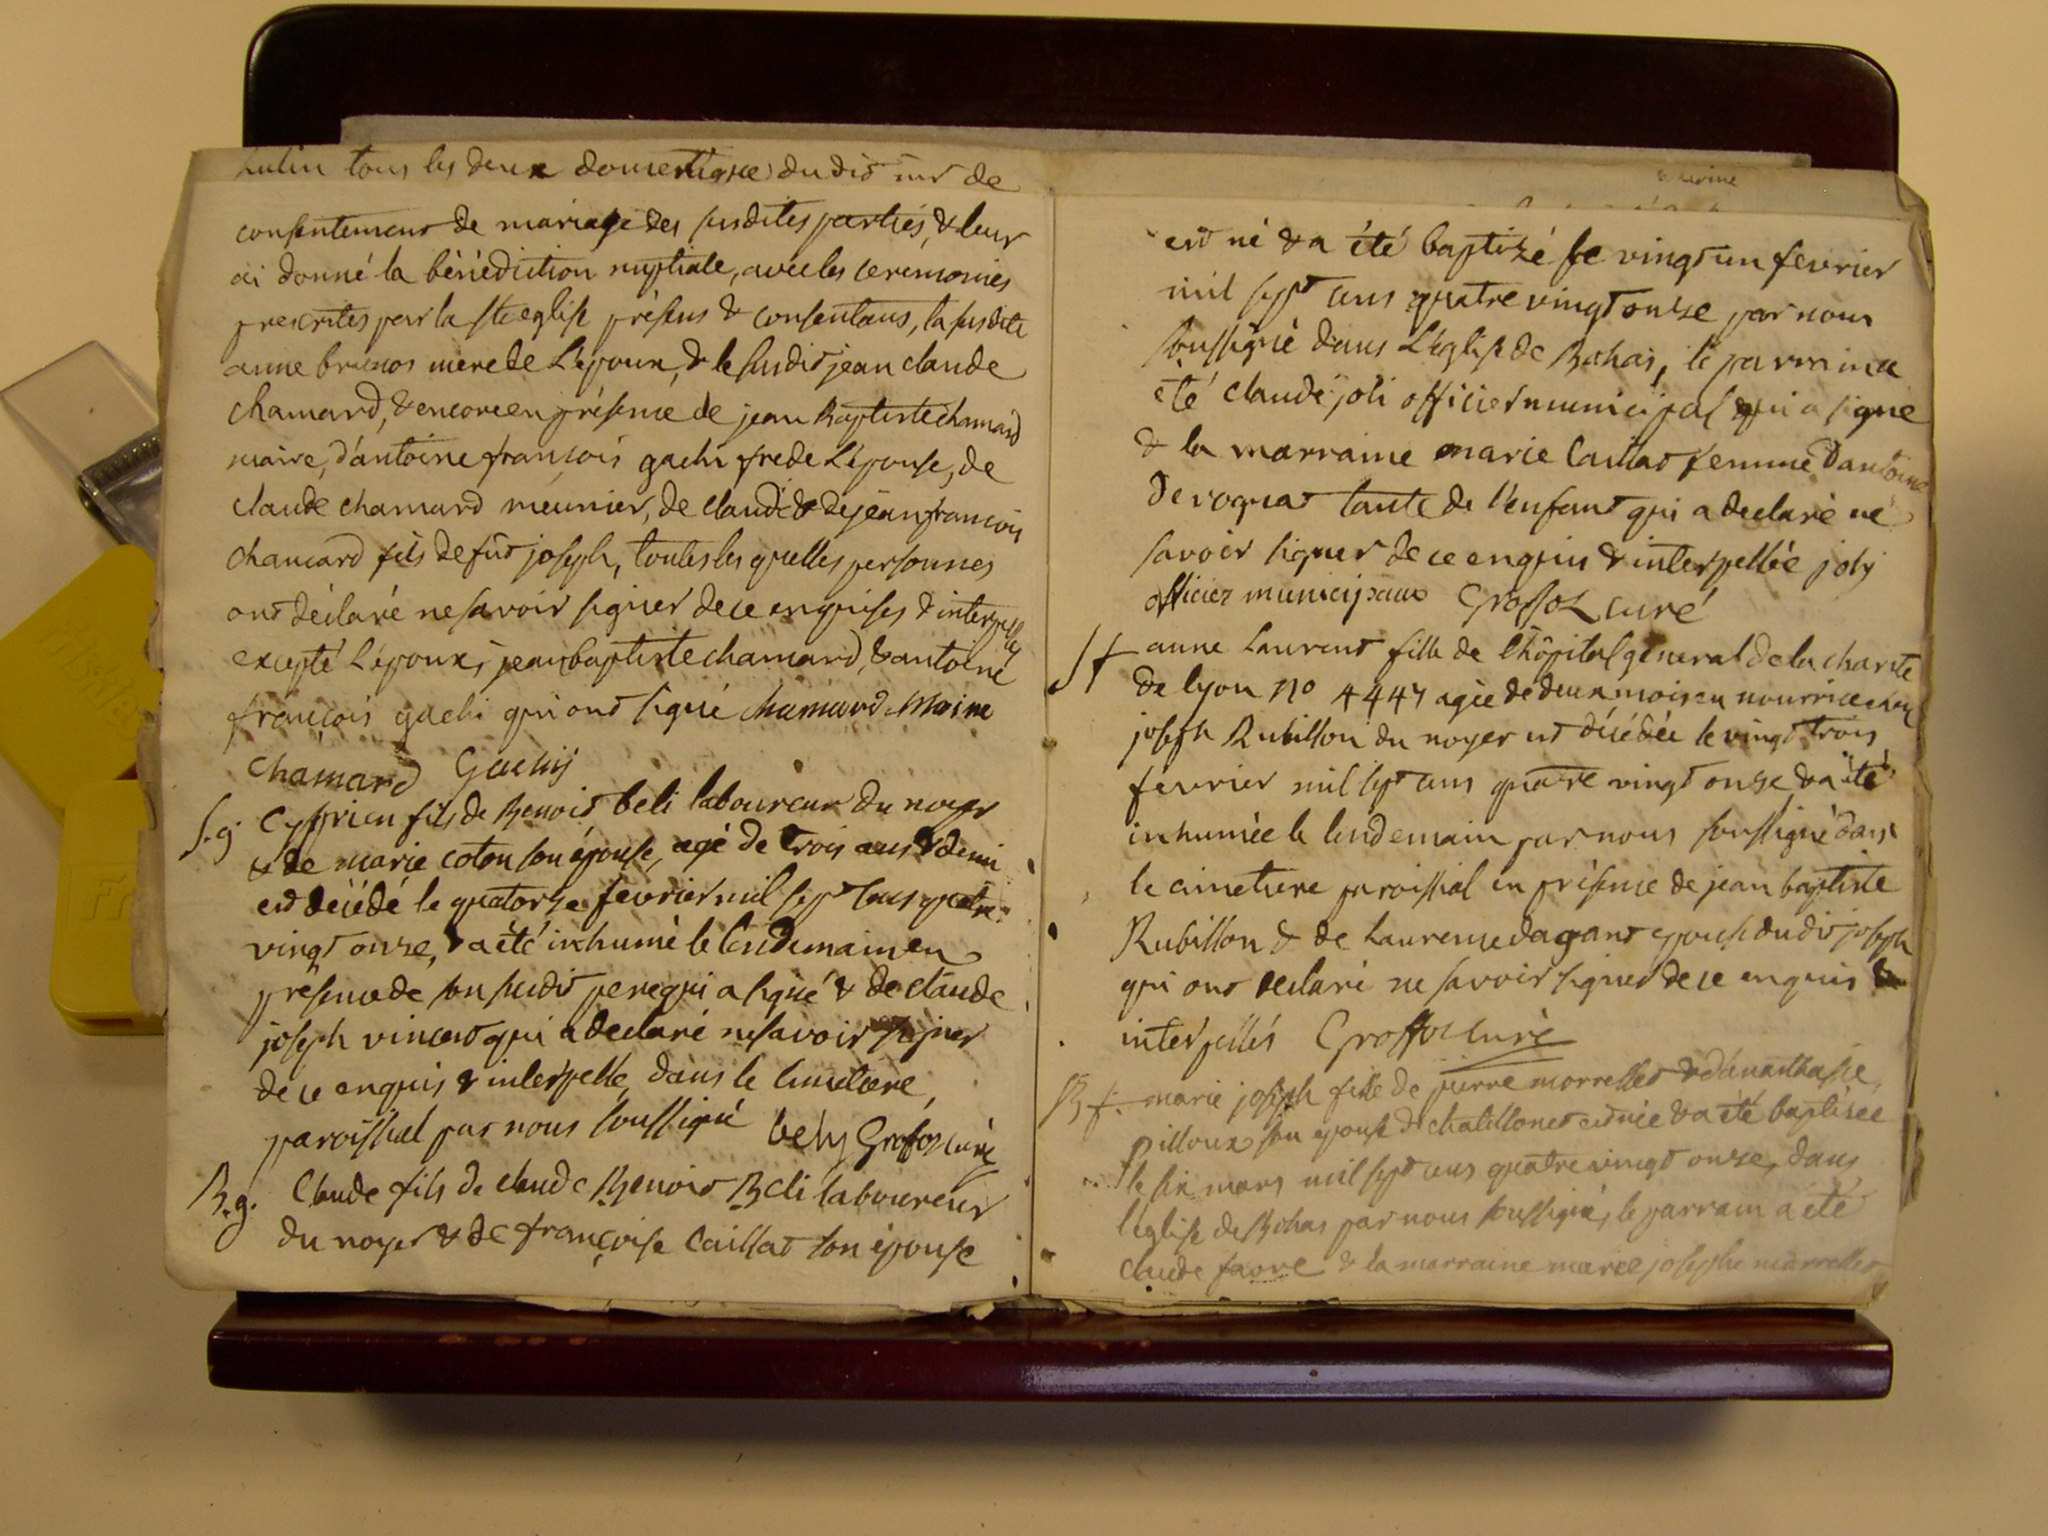 tous les deux domestiques dudit sieur de
consentement de mariage des susdites parties, & leur
ai donné la bénédiction nuptiale, avec les ceremonies
prescrites par la ste eglise présens & consentans, la susdite
anne brunot mere de L'époux, & le susdit jean claude
chamard, & encore en présence de jean Baptiste chamard
maire, d'antoine françois gachi frere de L'épouse, de
claude chamard meunier, de claude & de jean françois
chamard fils de fut joseph, toutes les quelles personnes
ont déclaré ne savoir signer de ce enquises & interpellées
excepté L'époux, jean baptiste chamard, & antoine
françois gachi qui ont signé chamard Maire
chamard Gachij
S.g. Cyprien fils de Benoit beli laboureur du noyer
& de marie coton son épouse, agé de trois ans & demi
est décédé le quatorze fevrier mil sept cens quatre
vingt onze, & a été inhumé le lendemain en
présence de son susdit pere qui a signé & de claude
joseph vincent qui a declaré ne savoir signer
de ce enquis & interpellé, dans le cimetiere
paroissial par nous soussigné bely Grossoz curé
B.g. Claude fils de claude Benoit Beli laboureur
du noyer & de françoise Caillat son épouse
est né & a été baptizé le vingt un fevrier
mil sept cens quatre vingt onze par nous
soussigné dans L'église de Bohas, le parrain a
été claude joli officier municipal qui a signe
& la marraine marie Caillat femme d'antoine
Derognat tante de l'enfant qui a declaré ne
savoir signer de ce enquis & interpellée joly
officier municipaux Grossoz curé
Sf anne Laurent fille de l'hôpital géneral de la charité
de lyon no 4447 agée de deux mois en nourrice chez
joseph Rubillon du noyer est décédée le vingt trois
fevrier mil sept cens quatre vingt onze & a été
inhumée le lendemain par nous soussigné dans
le cimetiere paroissial en présence de jean baptiste
Rubillon & de Laurence dagant epouse dudit joseph
qui ont declaré ne savoir signer de ce enquis &
interpellés Grossoz curé
B f. marie joseph fille de pierre morrellet & d'anasthasie
pilloux son epouse de chatillonet est née & a été baptisée
le six mars mil sept cens quatre vingt onze, dans
l'eglise de Bohas par nous soussigné, le parrain a été
claude favre & la marraine marie josephe morrellet